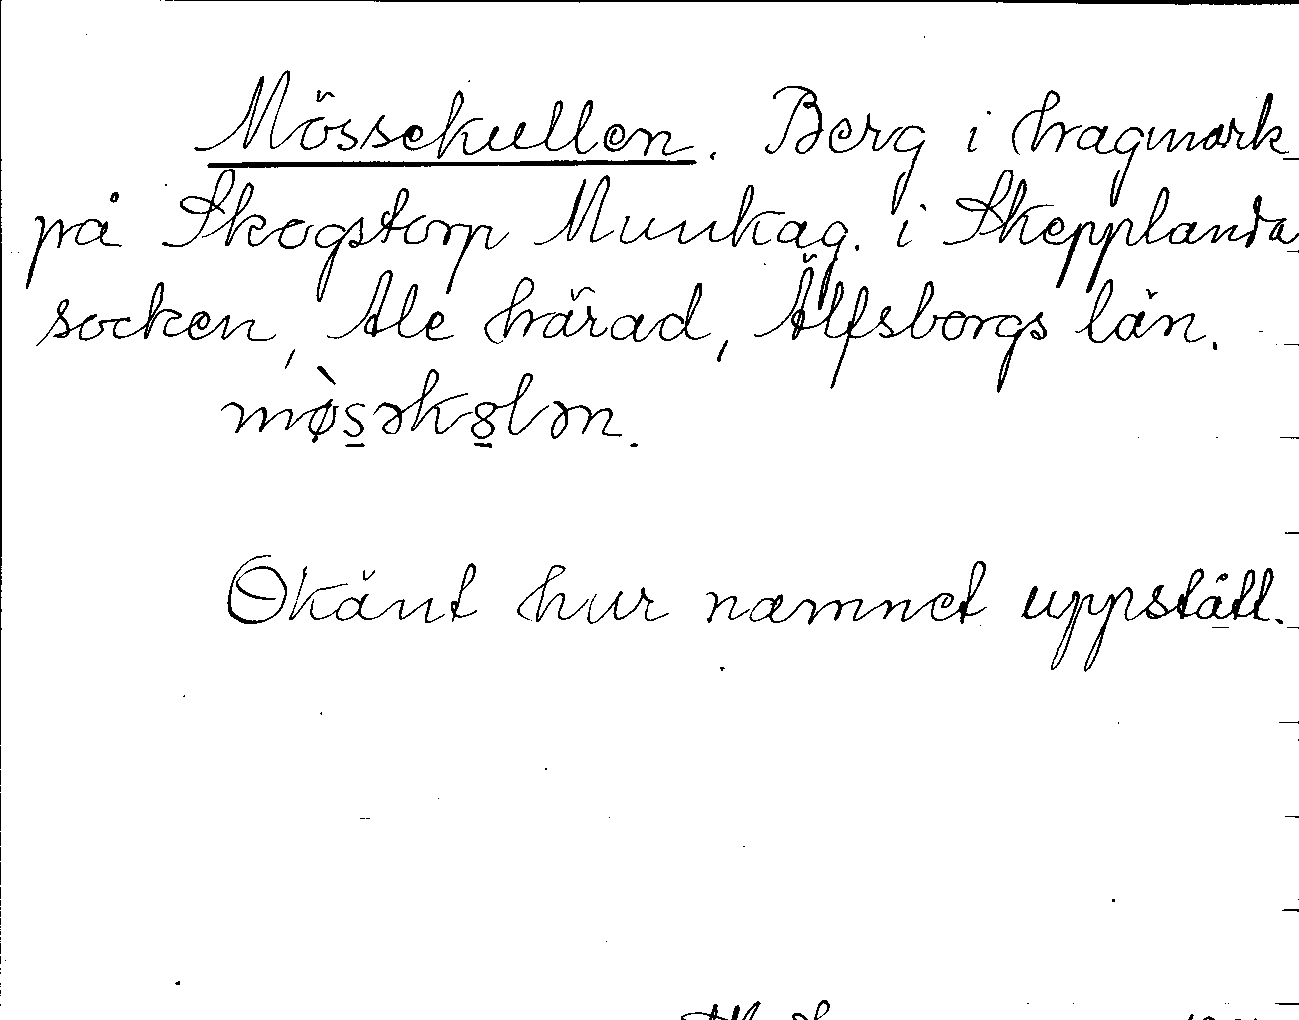 Mössekullen. Berg i hagmark
på Skogstorp Munkag. i Skepplanda
socken, Ale härad, Älfsborgs län.
mø̀s̲əkȣ̲lən.
Okänt hur namnet uppstått.